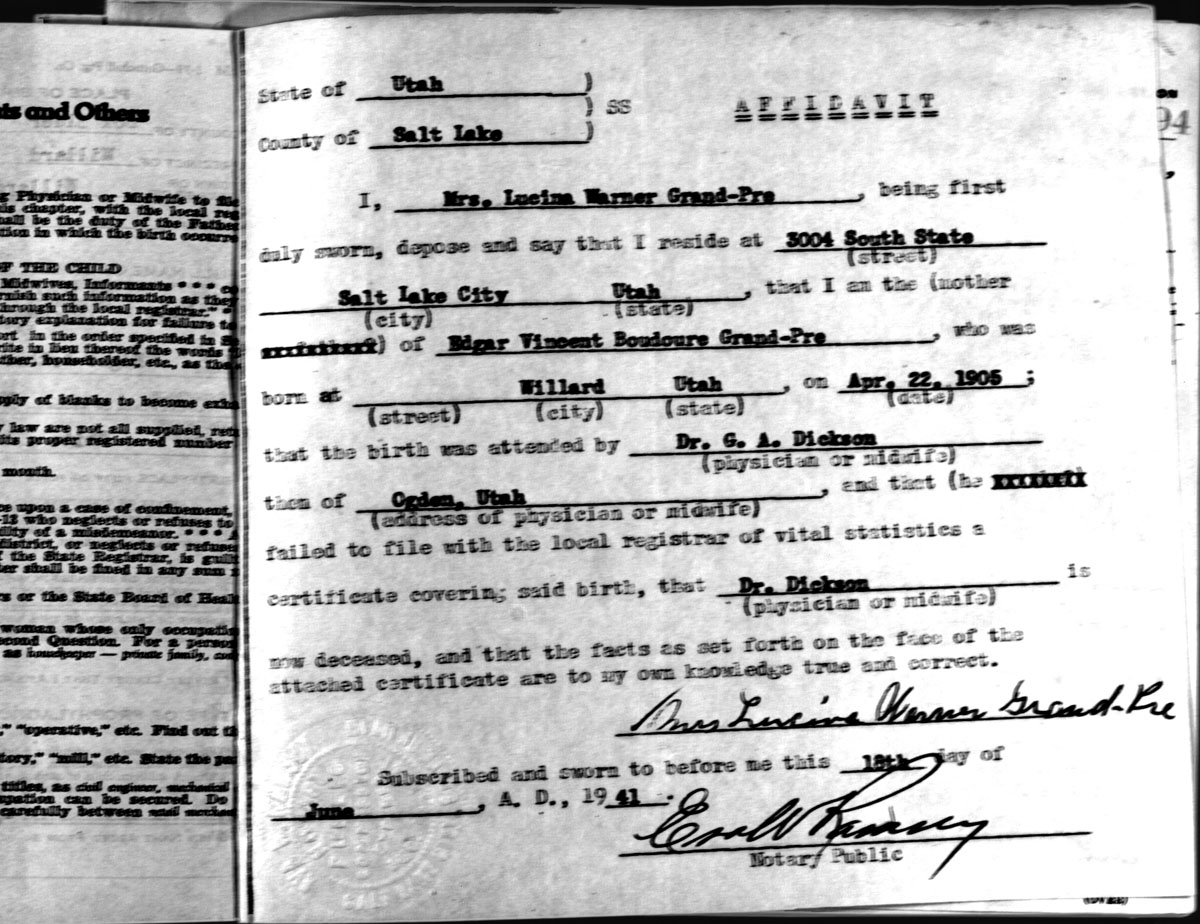 ts and Others
g Physician or Midwife to file
is chapter, with the local reg
hall be the duty of the Father
tion in which the birth occurre
OF THE CHILD
Midwives, Informants * * *
rnish such information as they
through the local registrar." *
tory explanation for failure to
ort in the order specified in
its in lieu thereof the words
ther, householder, etc., as the
pply of blanks to become exha
y law are not all supplied, retu
its proper registered number
month.
ce upon a case of confinement,
-12 who neglects or refuses to
ility of a misdemeanor. * * * A
district, or neglects or refuses
f the State Registrar, is guil
ter shall be fined in any sum
rs or the State Board of Heal
woman whose only occupatio
econd Question. For a person
as housekeeper — private family, cook
," "operative," etc. Find out th
tory," "mill," etc. State the
titles, as civil engineer, mechanical
upation can be secured. Do
carefully between
State of Utah )
) SS
County of Salt Lake )
A F F I D A V I T
I, Mrs. Lucina Warner Grand-Pre, being first
duly sworn, depose and say that I reside at 3004 South State
(street)
Salt Lake City Utah, that I am the (mother
(city) (state)
xxxxxxxxxx) of Edgar Vincent Boudoure Grand-Pre, who was
born at Willard Utah, on Apr. 22, 1905;
(street) (city) (state) (date)
that the birth was attended by Dr. G. A. Dickson
(physician or midwife)
then of Ogden, Utah, and that (he xxxxxxxx
(address of physician or midwife)
failed to file with the local registrar of vital statistics a
certificate covering said birth, that Dr. Dickson is
(physician or midwife)
now deceased, and that the facts as set forth on the face of the
attached certificate are to my own knowledge true and correct.
Mrs Lucina Warner Grand-Pre
Subscribed and sworn to before me this 18th day of
June, A. D., 1941.
Ramsey
Notary Public
94